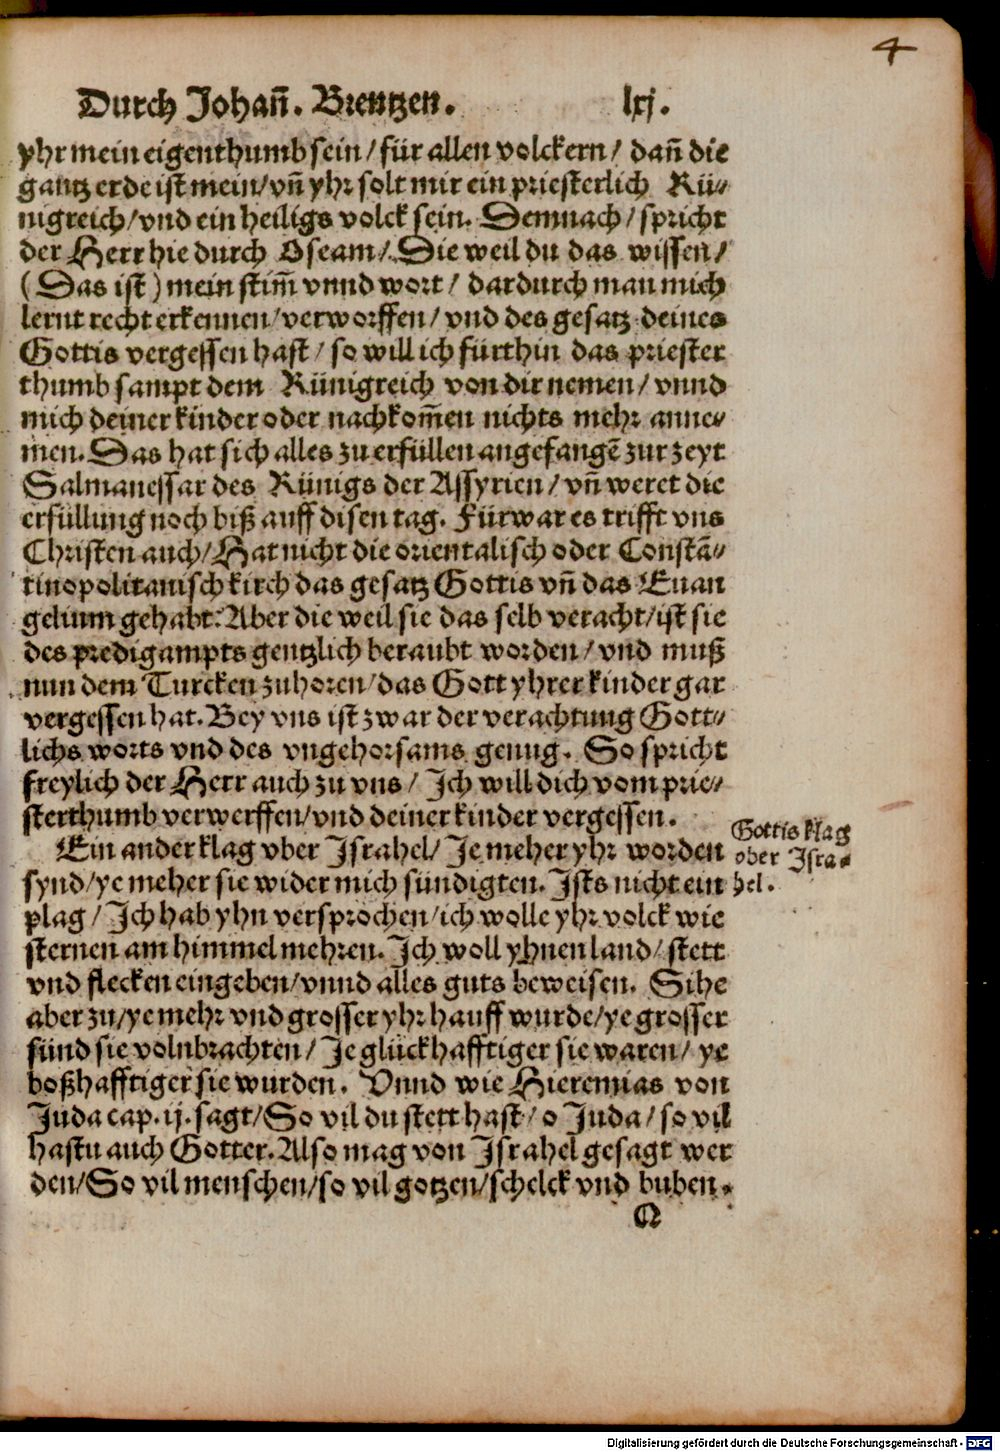 4
Durch Johañ. Brentzen. lxj.
yhr mein eigenthumb sein / für allen volckern / dañ die
gantz erde ist mein / vñ yhr solt mir ein priesterlich Kü⸗
nigreich / vnd ein heiligs volck sein. Demnach / spricht
der Herr hie durch Oseam / Die weil du das wissen /
( Das ist ) mein stim̃ vnnd wort / dardurch man mich
lernt recht erkennen / verworffen / vnd des gesatz deines
Gottis vergessen hast / so will ich fürthin das priester
thumb sampt dem Künigreich von dir nemen / vnnd
mich deiner kinder oder nachkom̃en nichts mehr anne⸗
men. Das hat sich alles zu erfüllen angefangẽ zur zeyt
Salmanessar des Künigs der Assyrien / vñ weret die
erfüllung noch biß auff disen tag. Fürwar es trifft vns
Christen auch / Hat nicht die orientalisch oder Constã⸗
tinopolitanisch kirch das gesatz Gottis vñ das Euan
gelium gehabt? Aber die weil sie das selb veracht / ist sie
des predigampts gentzlich beraubt worden / vnd muß
nun dem Turcken zuhoren / das Gott yhrer kinder gar
vergessen hat. Bey vns ist zwar der verachtung Gott⸗
lichs worts vnd des vngehorsams genug. So spricht
freylich der Herr auch zu vns / Ich will dich vom prie⸗
sterthumb verwerffen / vnd deiner kinder vergessen.
Ein ander klag vber Israhel / Je meher yhr worden
synd / ye meher sie wider mich sündigten. Ists nicht ein
plag / Ich hab yhn versprochen / ich wolle yhr volck wie
sternen am himmel mehren. Ich woll yhnen land / stett
vnd flecken eingeben / vnnd alles guts beweisen. Sihe
aber zu / ye mehr vnd grosser yhr hauff wurde / ye grosser
sünd sie volnbrachten / Je glückhafftiger sie waren / ye
boßhafftiger sie wurden. Vnnd wie Hieremias von
Juda cap. ij. sagt / So vil du stett hast / o Juda / so vil
hastu auch Gotter. Also mag von Israhel gesagt wer
den / So vil menschen / so vil gotzen / schelck vnd buben.
Gottis klag
ober Isra⸗
hel.
Q
Digitalisierung gefördert durch die Deutsche Forschungsgemeinschaft - DFG